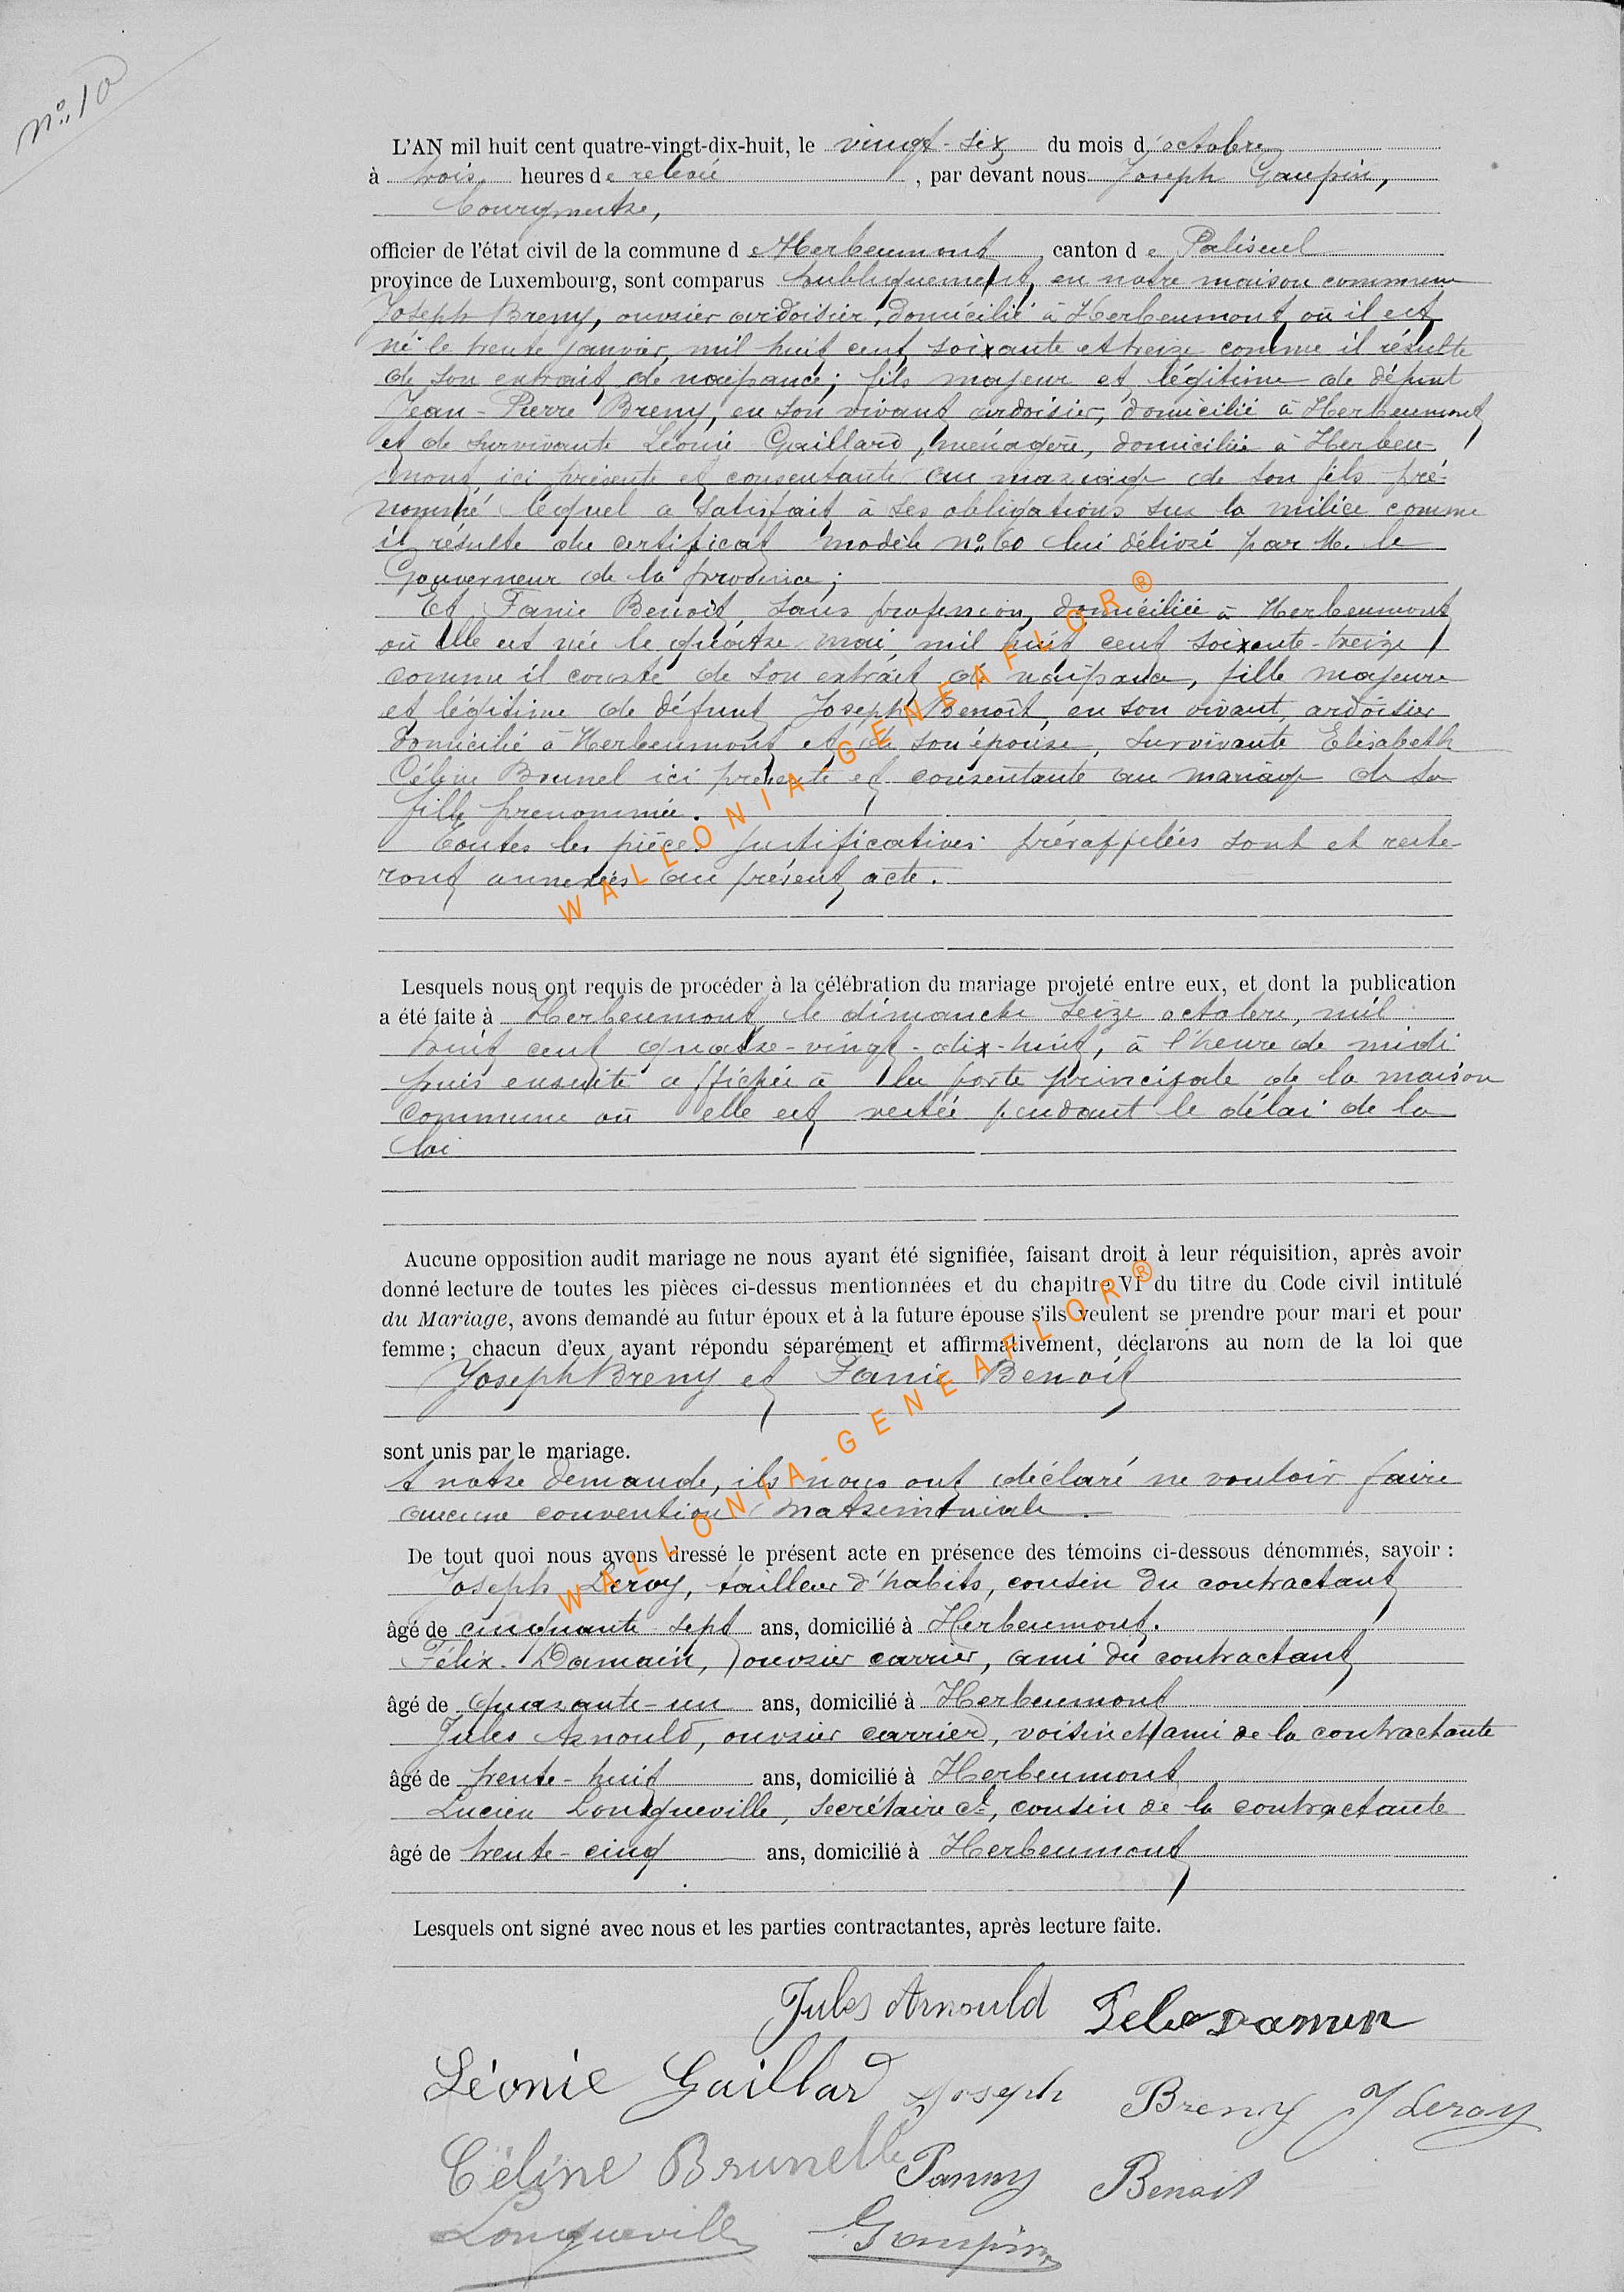 N° 10
L'AN mil huit cent quatre-vingt-dix-huit, le vingt-six du mois d'octobre
à trois heures de relevée, par devant nous Joseph Gaupin,
Bourgmestre,
officier de l'état civil de la commune de Herbeumont, canton de Paliseul
province de Luxembourg, sont comparus publiquement, en notre maison commune
Joseph Breny, ouvrier ardoisier, domicilié à Herbeumont où il est
né le trente janvier, mil huit cent soixante et treize comme il résulte
de son extrait de naissance; fils majeur et légitime de défunt
Jean-Pierre Breny, en son vivant ardoisier, domicilié à Herbeumont
et de survivante Léonie Gaillard, ménagère, domiciliée à Herbeu-
mont, ici présente et consentante au mariage de son fils pré-
nommé lequel a satisfait à ses obligations sur la milice comme
il résulte du certificat modèle n° 60 lui délivré par M. le
Gouverneur de la province;
Et Fanie Benoit, sans profession, domiciliée à Herbeumont
où elle est née le quatre mai, mil huit cent soixante-treize
comme il conste de son extrait de naissance, fille majeure
et légitime de défunt Joseph Benoît, en son vivant, ardoisier
domicilié à Herbeumont et de son épouse, survivante Elisabeth
Céline Brunel ici présente et consentante au mariage de sa
fille prénommée.
Toutes les pièces justificatives prérappelées sont et reste-
ront annexées au présent acte.
Lesquels nous ont requis de procéder à la célébration du mariage projeté entre eux, et dont la publication
a été faite à Herbeumont le dimanche seize octobre, mil
huit cent quatre-vingt-dix-huit, à l'heure de midi
puis ensuite affichée à la porte principale de la maison
commune où elle est restée pendant le délai de la
loi
Aucune opposition audit mariage ne nous ayant été signifiée, faisant droit à leur réquisition, après avoir
donné lecture de toutes les pièces ci-dessus mentionnées et du chapitre VI du titre du Code civil intitulé
du Mariage, avons demandé au futur époux et à la future épouse s'ils veulent se prendre pour mari et pour
femme; chacun d'eux ayant répondu séparément et affirmativement, déclarons au nom de la loi que
Joseph Breny et Fanie Benoit
sont unis par le mariage.
A notre demande, ils nous ont déclaré ne vouloir faire
aucune convention matrimoniale.
De tout quoi nous avons dressé le présent acte en présence des témoins ci-dessous dénommés, savoir :
Joseph Leroy, tailleur d'habits, cousin du contractant
âgé de cinquante-sept ans, domicilié à Herbeumont.
Félix Damain, ouvrier carrier, ami du contractant
âgé de quarante-un ans, domicilié à Herbeumont
Jules Arnould, ouvrier carrier, voisin et ami de la contractante
âgé de trente-huit ans, domicilié à Herbeumont
Lucien Longueville, secrétaire cl, cousin de la contractante
âgé de trente-cinq ans, domicilié à Herbeumont
Lesquels ont signé avec nous et les parties contractantes, après lecture faite.
Jules Arnould Damen
Léonie Gaillard Joseph Breny J Leroy
Céline Brunelle Fanny Benoit
Longueville Gaupin
WALLONIA-GENEAFLOR®
WALLONIA-GENEAFLOR®